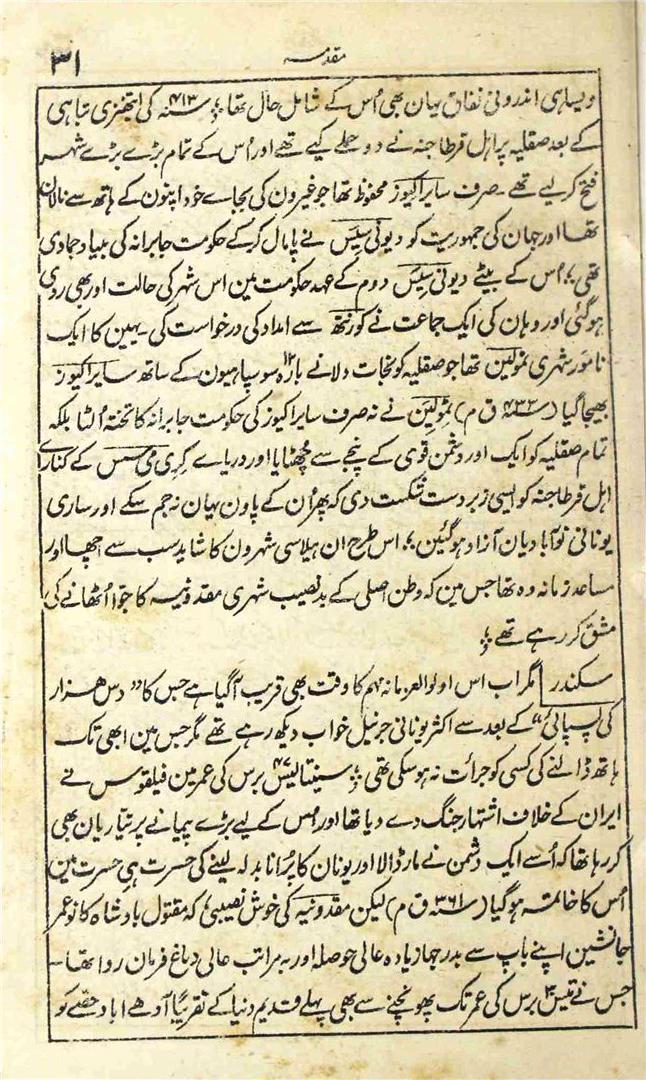 مقدمہ
۳۱
ویساہی اندرونی نفاق یہان بھی اُس کے شامل حال تھا؛ سنہ ۴۱۳ کی ایتھنزی تباہی
کے بعد صقلیہ پر اہل قرطاجنہ نے دو حملے کیے تھے اور اُس کے تمام بڑے بڑے شہر
فتح کر لیے تھے۔ صرف سایراکیوز محفوظ تھا جو غیرون کی بجاے خود اپنون کے ہاتھ سے نالان
تھا اور جہان کی جمہوریت کو دیونی سیَس نے پامال کرکے حکومت جابرانہ کی بنیاد جمادی
تھی؛ اُس کے بیٹے دیونی سیَس دوم کے عہد حکومت مین اس شہر کی حالت اور بھی ردی
ہوگئی اور وہان کی ایک جماعت نے کورنتھ سے امداد کی درخواست کی۔ یہین کا ایک
نامور شہری تمولین تھا جو صقلیہ کو نجات دلانے بارہ ۱۲ سو سپاہیون کے ساتھ سایراکیوز
بھیجا گیا (سنہ ق م) تمولین نے نہ صرف سایراکیوز کی حکومت جابرانہ کا تختہ اُلٹا بلکہ
تمام صقلیہ کو ایک اور دشمن قوی کے پنجے سے چھٹایا اور دریاے کری می سس کے کنارے
اہل قرطاجنہ کو ایسی زبردست شکست دی کہ پھر اُن کے پاون یہان نہ جم سکے اور ساری
یونانی نوآبادیان آزاد ہوگئین؛ اس طرح ان ہیلاسی شہرون کا شاید سب سے اچھا اور
مساعد زمانہ وہ تھا جس مین کہ وطن اصلی کے بدنصیب شہری مقدونیہ کا جوا اُٹھانے کی
مشق کر رہے تھے؛
سکندر | مگر اب اس اولوالعزمانہ مہم کا وقت بھی قریب آگیا ہے جس کا "دس ھزار
کی پسپائی" کے بعد سے اکثر یونانی جرنیل خواب دیکھ رہے تھے مگر جس مین ابھی تک
ہاتھ ڈالنے کی کسی کو جرائت نہ ہوسکی تھی؛ سینتالیس ۴۷ برس کی عمر مین فیلقوس نے
ایران کے خلاف اشتہار جنگ دے دیا تھا اور اُس کے لیے بڑے پیمانے پر تیاریان بھی
کر رہا تھا کہ اُسے ایک دشمن نے مار ڈالا اور یونان کا پُرانا بدلہ لینے کی حسرت ہی حسرت مین
اُس کا خاتمہ ہوگیا (سنہ ۳۶۱ ق م) لیکن مقدونیہ کی خوش نصیبی، کہ مقتول بادشاہ کا نو عمر
جانشین اپنے باپ سے بدرجہا زیادہ عالی حوصلہ اور بہ مراتب عالی دماغ فرمان روا تھا۔
جس نے تیس ۳۰ برس کی عمر تک پھونچنے سے بھی پہلے قدیم دنیا کے تقریباً آدھے اباد حصّے کو